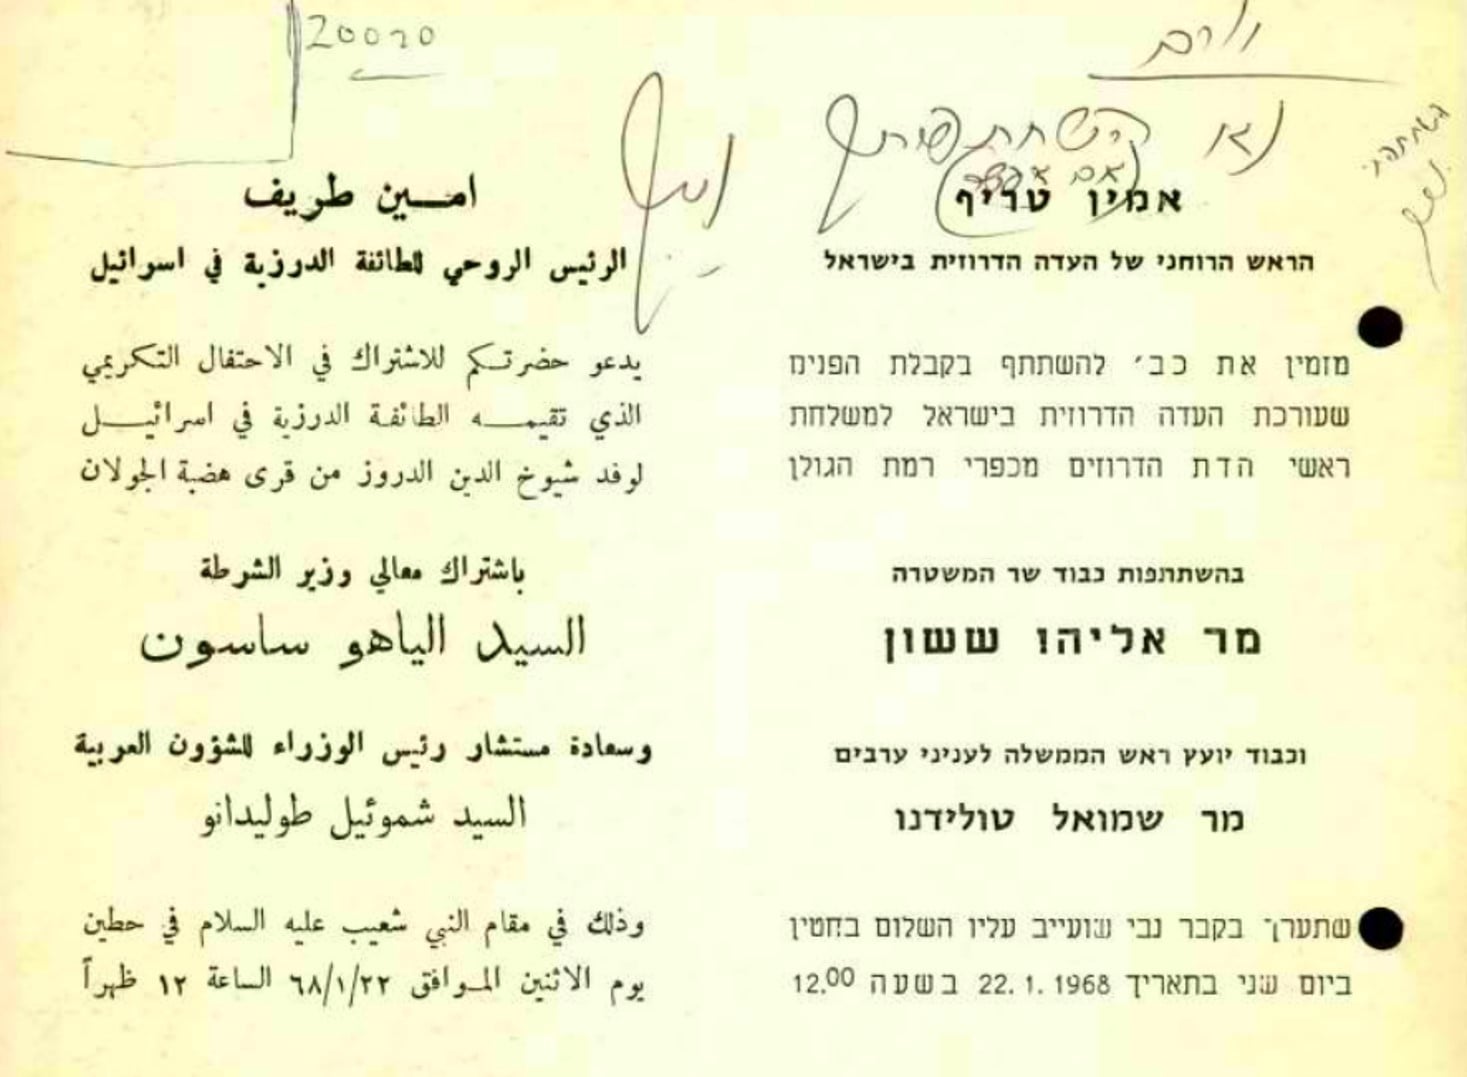 20020
אמין טריף
הראש הרוחני של העדה הדרוזית בישראל
מזמין את כב׳ להשתתף בקבלת הפנים
שעורכת העדה הדרוזית בישראל למשלחת
ראשי הדת הדרוזים מכפרי רמת הגולן
בהשתתפות כבוד שר המשטרה
מר אליהו ששון
וכבוד יועץ ראש הממשלה לעניני ערבים
מר שמואל טולידנו
שתערך בקבר נבי שועייב עליו השלום בחטין
ביום שני בתאריך 22.1.1968 בשעה 12.00
امـــين طريف
الرئيس الروحي للطائفة الدرزية في اسرائيل
يدعو حضرتـكم للاشتراك في الاحتفال التكريمي
الذي تقيمــه الطائفة الدرزية في اسرائيــل
لوفد شيوخ الدين الدروز من قرى هضبة الجولان
باشتراك معالي وزير الشرطة
السيد الياهو ساسون
وسعادة مستشار رئيس الوزراء للشؤون العربية
السيد شموئيل طوليدانو
وذلك في مقام النبي شعيب عليه السلام في حطين
يوم الاثنين المـوافق ٦٨/١/٢٢ الساعة ١٢ ظهراً